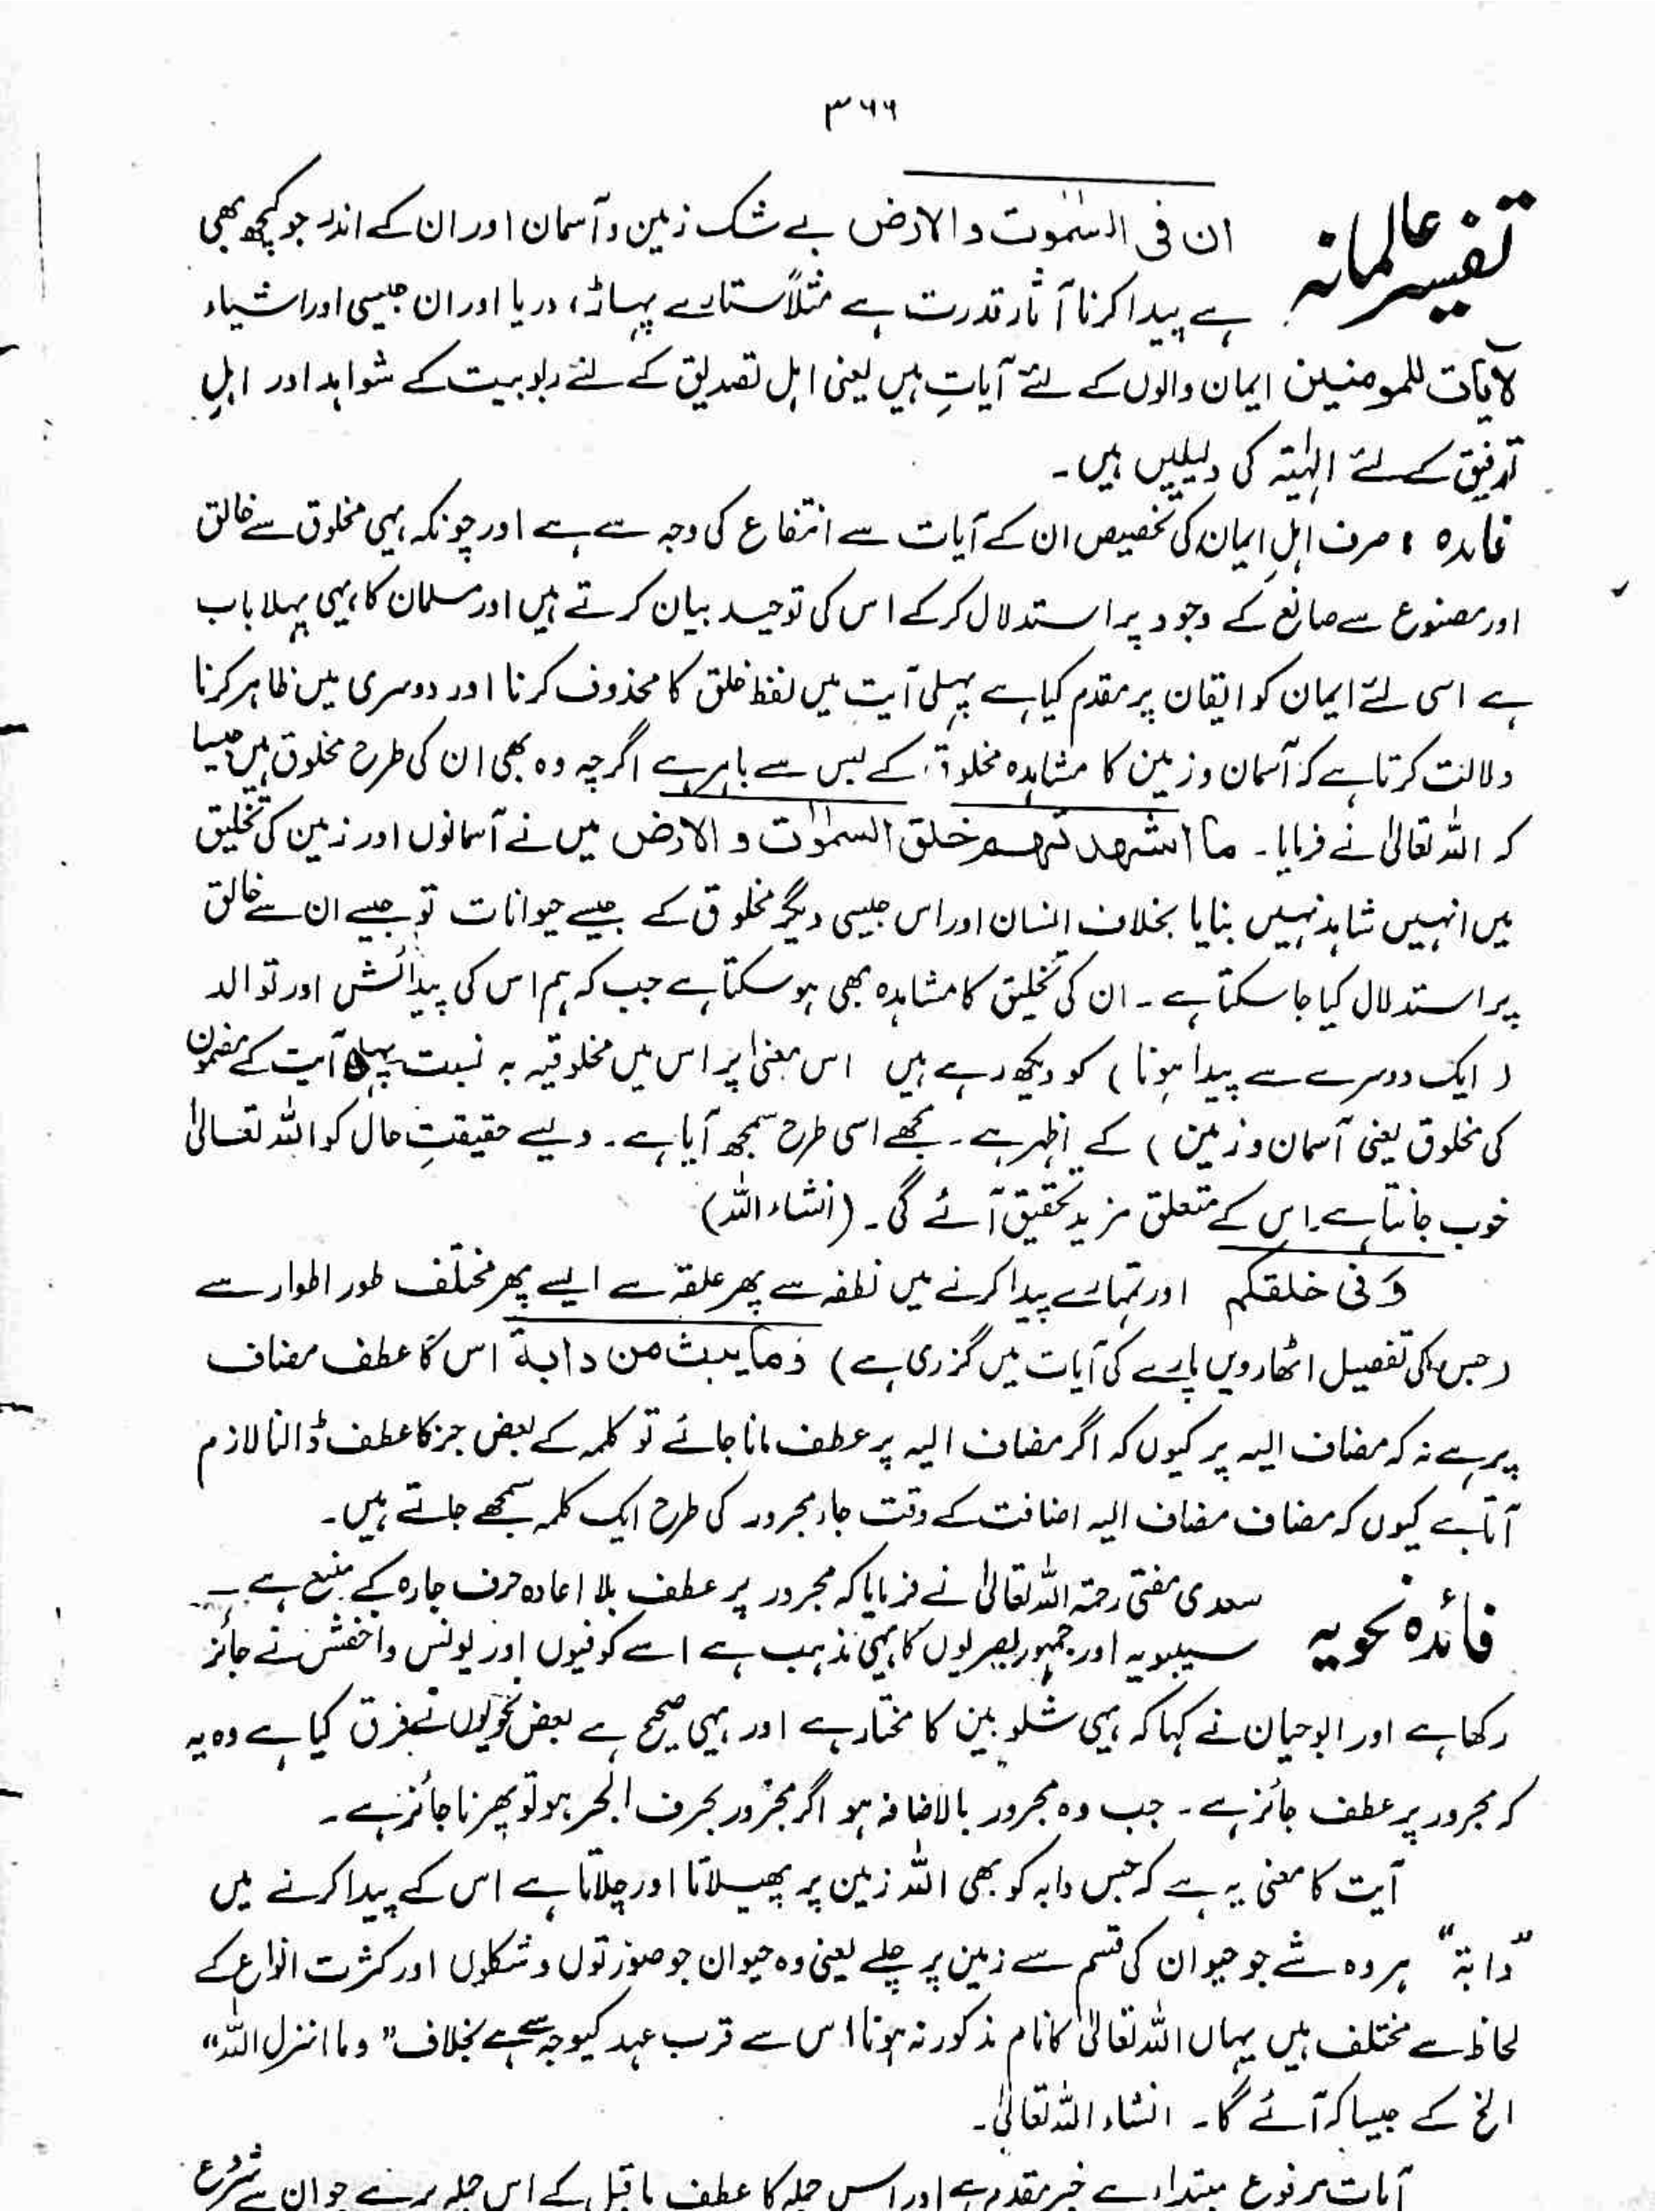 ۳۶۶
تفسیر عالمانہ
ان فی السمٰوٰت والارض بے شک زمین و آسمان اور ان کے اندر جو کچھ بھی
ہے پیدا کرنا آثار قدرت ہے مثلاً ستارے پہاڑ، دریا اور ان جیسی اور اشیاء
لآیٰت للمومنین ایمان والوں کے لئے آیاتِ ہیں یعنی اہل تصدیق کے لئے ربوبیت کے شواہد اور اہلِ
توفیق کے لئے الہٰیتہ کی دلیلیں ہیں۔
فائدہ : صرف اہلِ ایمان کی تخصیص ان کے آیات سے انتفاع کی وجہ سے ہے اور چونکہ یہی مخلوق سے خالق
اور مصنوع سے صانع کے وجود پر استدلال کرکے اس کی توحید بیان کرتے ہیں اور مسلمان کا یہی پہلا باب
ہے اسی لئے ایمان کو ایقان پر مقدم کیا ہے پہلی آیت میں لفظ خلق کا محذوف کرنا اور دوسری میں ظاہر کرنا
دلالت کرتا ہے کہ آسمان و زمین کا مشاہدہ مخلوق کے بس سے باہر ہے اگرچہ وہ بھی ان کی طرح مخلوق ہیں جیسا
کہ اللہ تعالیٰ نے فرمایا۔ ما اشھدتھم خلق السمٰوٰت و الارض میں نے آسمانوں اور زمین کی تخلیق
میں انہیں شاہد نہیں بنایا بخلاف انسان اور اس جیسی دیگر مخلوق کے جیسے حیوانات تو جیسے ان سے خالق
پر استدلال کیا جا سکتا ہے۔ ان کی تخلیق کا مشاہدہ بھی ہو سکتا ہے جب کہ ہم اس کی پیدائش اور توالد
(ایک دوسرے سے پیدا ہونا) کو دیکھ رہے ہیں اس معنیٰ پر اس میں مخلوقیہ بہ نسبت پہلی آیت کے مضمون
کی مخلوق یعنی آسمان و زمین) کے اظہر ہے۔ مجھے اسی طرح سمجھ آیا ہے۔ ویسے حقیقتِ حال کو اللہ تعالیٰ
خوب جانتا ہے۔ اس کے متعلق مزید تحقیق آئے گی۔ (انشاء اللہ)
وَفی خلقکم اور تمہارے پیدا کرنے میں نطفہ سے پھر علقہ سے ایسے پھر مختلف طور اطوار سے
(جس کی تفصیل اٹھارویں پارے کی آیات میں گزری ہے) وَما یبث من دابۃ اس کا عطف مضاف
پر ہے نہ کہ مضاف الیہ پر کیوں کہ اگر مضاف الیہ پر عطف مانا جائے تو کلمہ کے بعض جز کا عطف ڈالنا لازم
آتا ہے کیوں کہ مضاف مضاف الیہ اضافت کے وقت جار مجرور کی طرح ایک کلمہ سمجھے جاتے ہیں۔
فائدہ نحویہ
سعدی مفتی رحمۃ اللہ تعالیٰ نے فرمایا کہ مجرور پر عطف بلا اعادہ حرف جارہ کے منع ہے۔
سیبویہ اور جمہور بصریوں کا یہی مذہب ہے اسے کوفیوں اور یونس و اخفش نے جائز
رکھا ہے اور ابوحیان نے کہا کہ یہی شلوبین کا مختار ہے اور یہی صحیح ہے بعض نحویوں نے فرق کیا ہے وہ یہ
کہ مجرور پر عطف جائز ہے۔ جب وہ مجرور بالاضافہ ہو اگر مجرور بحرف الجر ہو تو پھر ناجائز ہے۔
آیت کا معنی یہ ہے کہ جس دابہ کو بھی اللہ زمین پر پھیلاتا اور چلاتا ہے اس کے پیدا کرنے میں
”دابۃ“ ہر وہ شے جو حیوان کی قسم سے زمین پر چلے یعنی وہ حیوان جو صورتوں و شکلوں اور کثرت انواع کے
لحاظ سے مختلف ہیں یہاں اللہ تعالیٰ کا نام مذکور نہ ہونا اس سے قرب عہد کیوجہ سے ہے بخلاف ”وما انزل اللہ“
الخ کے جیسا کہ آئے گا۔ انشاء اللہ تعالیٰ۔
آیات مرفوع مبتداء ہے خبر مقدم ہے اور اس جملہ کا عطف ماقبل کے اس جملہ پر ہے جو ان سے شروع